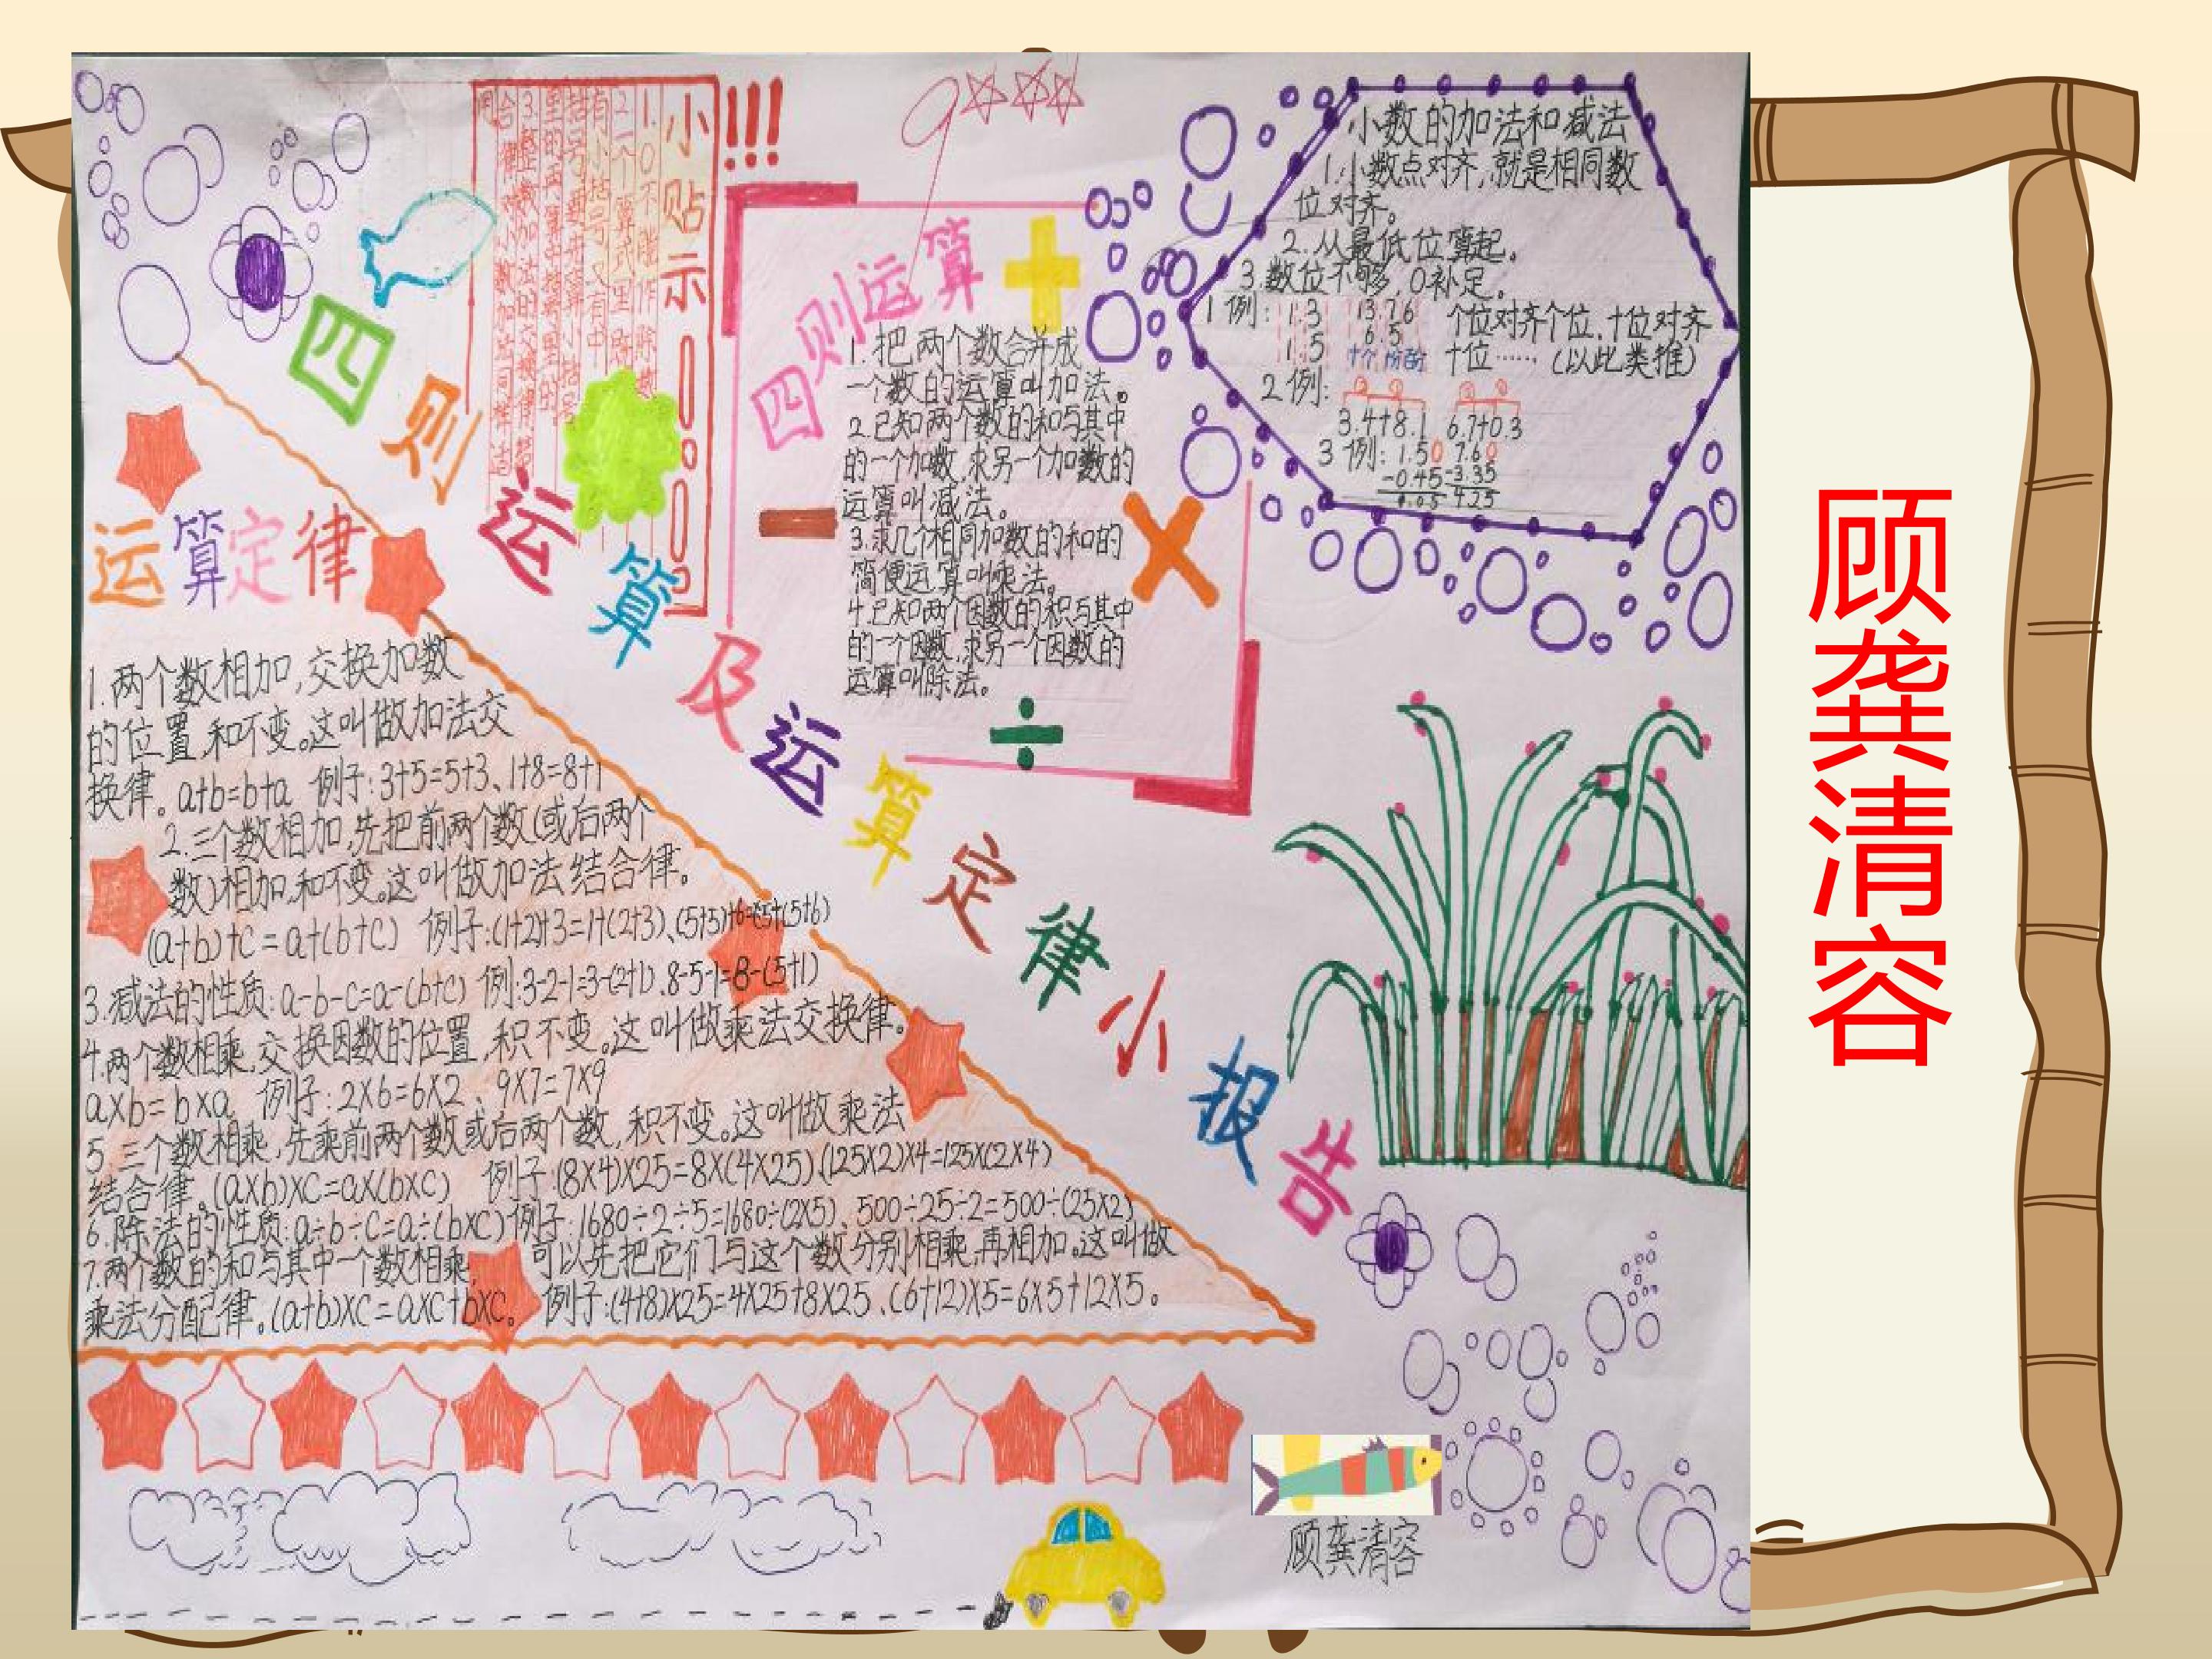 四则运算及运算定律小报告
小贴示!!!
1.0不能作除数
2.一个算式里既
有小括号又有中
括号要先算小括号
里的再算中括号里的
四则运算
1.把两个数合并成
一个数的运算叫加法。
2.已知两个数的和与其中
的一个加数,求另一个加数的
运算叫减法。
3.求几个相同加数的和的
简便运算叫乘法。
4.已知两个因数的积与其中
的一个因数,求另一个因数的
运算叫除法。
小数的加法和减法
1.小数点对齐,就是相同数
位对齐。
2.从最低位算起。
3.数位不够,0补足。
1例: 1.3 13.76 个位对齐个位,十位对齐
1.5 6.5 十位……(以此类推)
2例:
3.4+8.1 6.7+0.3
3例: 1.50 7.60
-0.45 -3.35
4.25
运算定律
1.两个数相加,交换加数
的位置,和不变。这叫做加法交
换律。a+b=b+a 例子:3+5=5+3、1+8=8+1
2.三个数相加,先把前两个数(或后两个
数)相加,和不变。这叫做加法结合律。
(a+b)+c=a+(b+c) 例子:(1+2)+3=1+(2+3)、(5+5)+6=5+(5+6)
3.减法的性质:a-b-c=a-(b+c) 例:3-2-1=3-(2+1)、8-5-1=8-(5+1)
4.两个数相乘,交换因数的位置,积不变。这叫做乘法交换律。
a×b=b×a 例子:2×6=6×2、9×7=7×9
5.三个数相乘,先乘前两个数或后两个数,积不变。这叫做乘法
结合律。(a×b)×c=a×(b×c) 例子:(8×4)×25=8×(4×25)、(125×2)×4=125×(2×4)
6.除法的性质:a÷b÷c=a÷(b×c)例子:1680÷2÷5=1680÷(2×5)、500÷25÷2=500÷(25×2)
7.两个数的和与其中一个数相乘,可以先把它们与这个数分别相乘,再相加。这叫做
乘法分配律。(a+b)×c=a×c+b×c。例子:(4+8)×25=4×25+8×25、(6+12)×5=6×5+12×5。
顾龚清容
顾龚清容